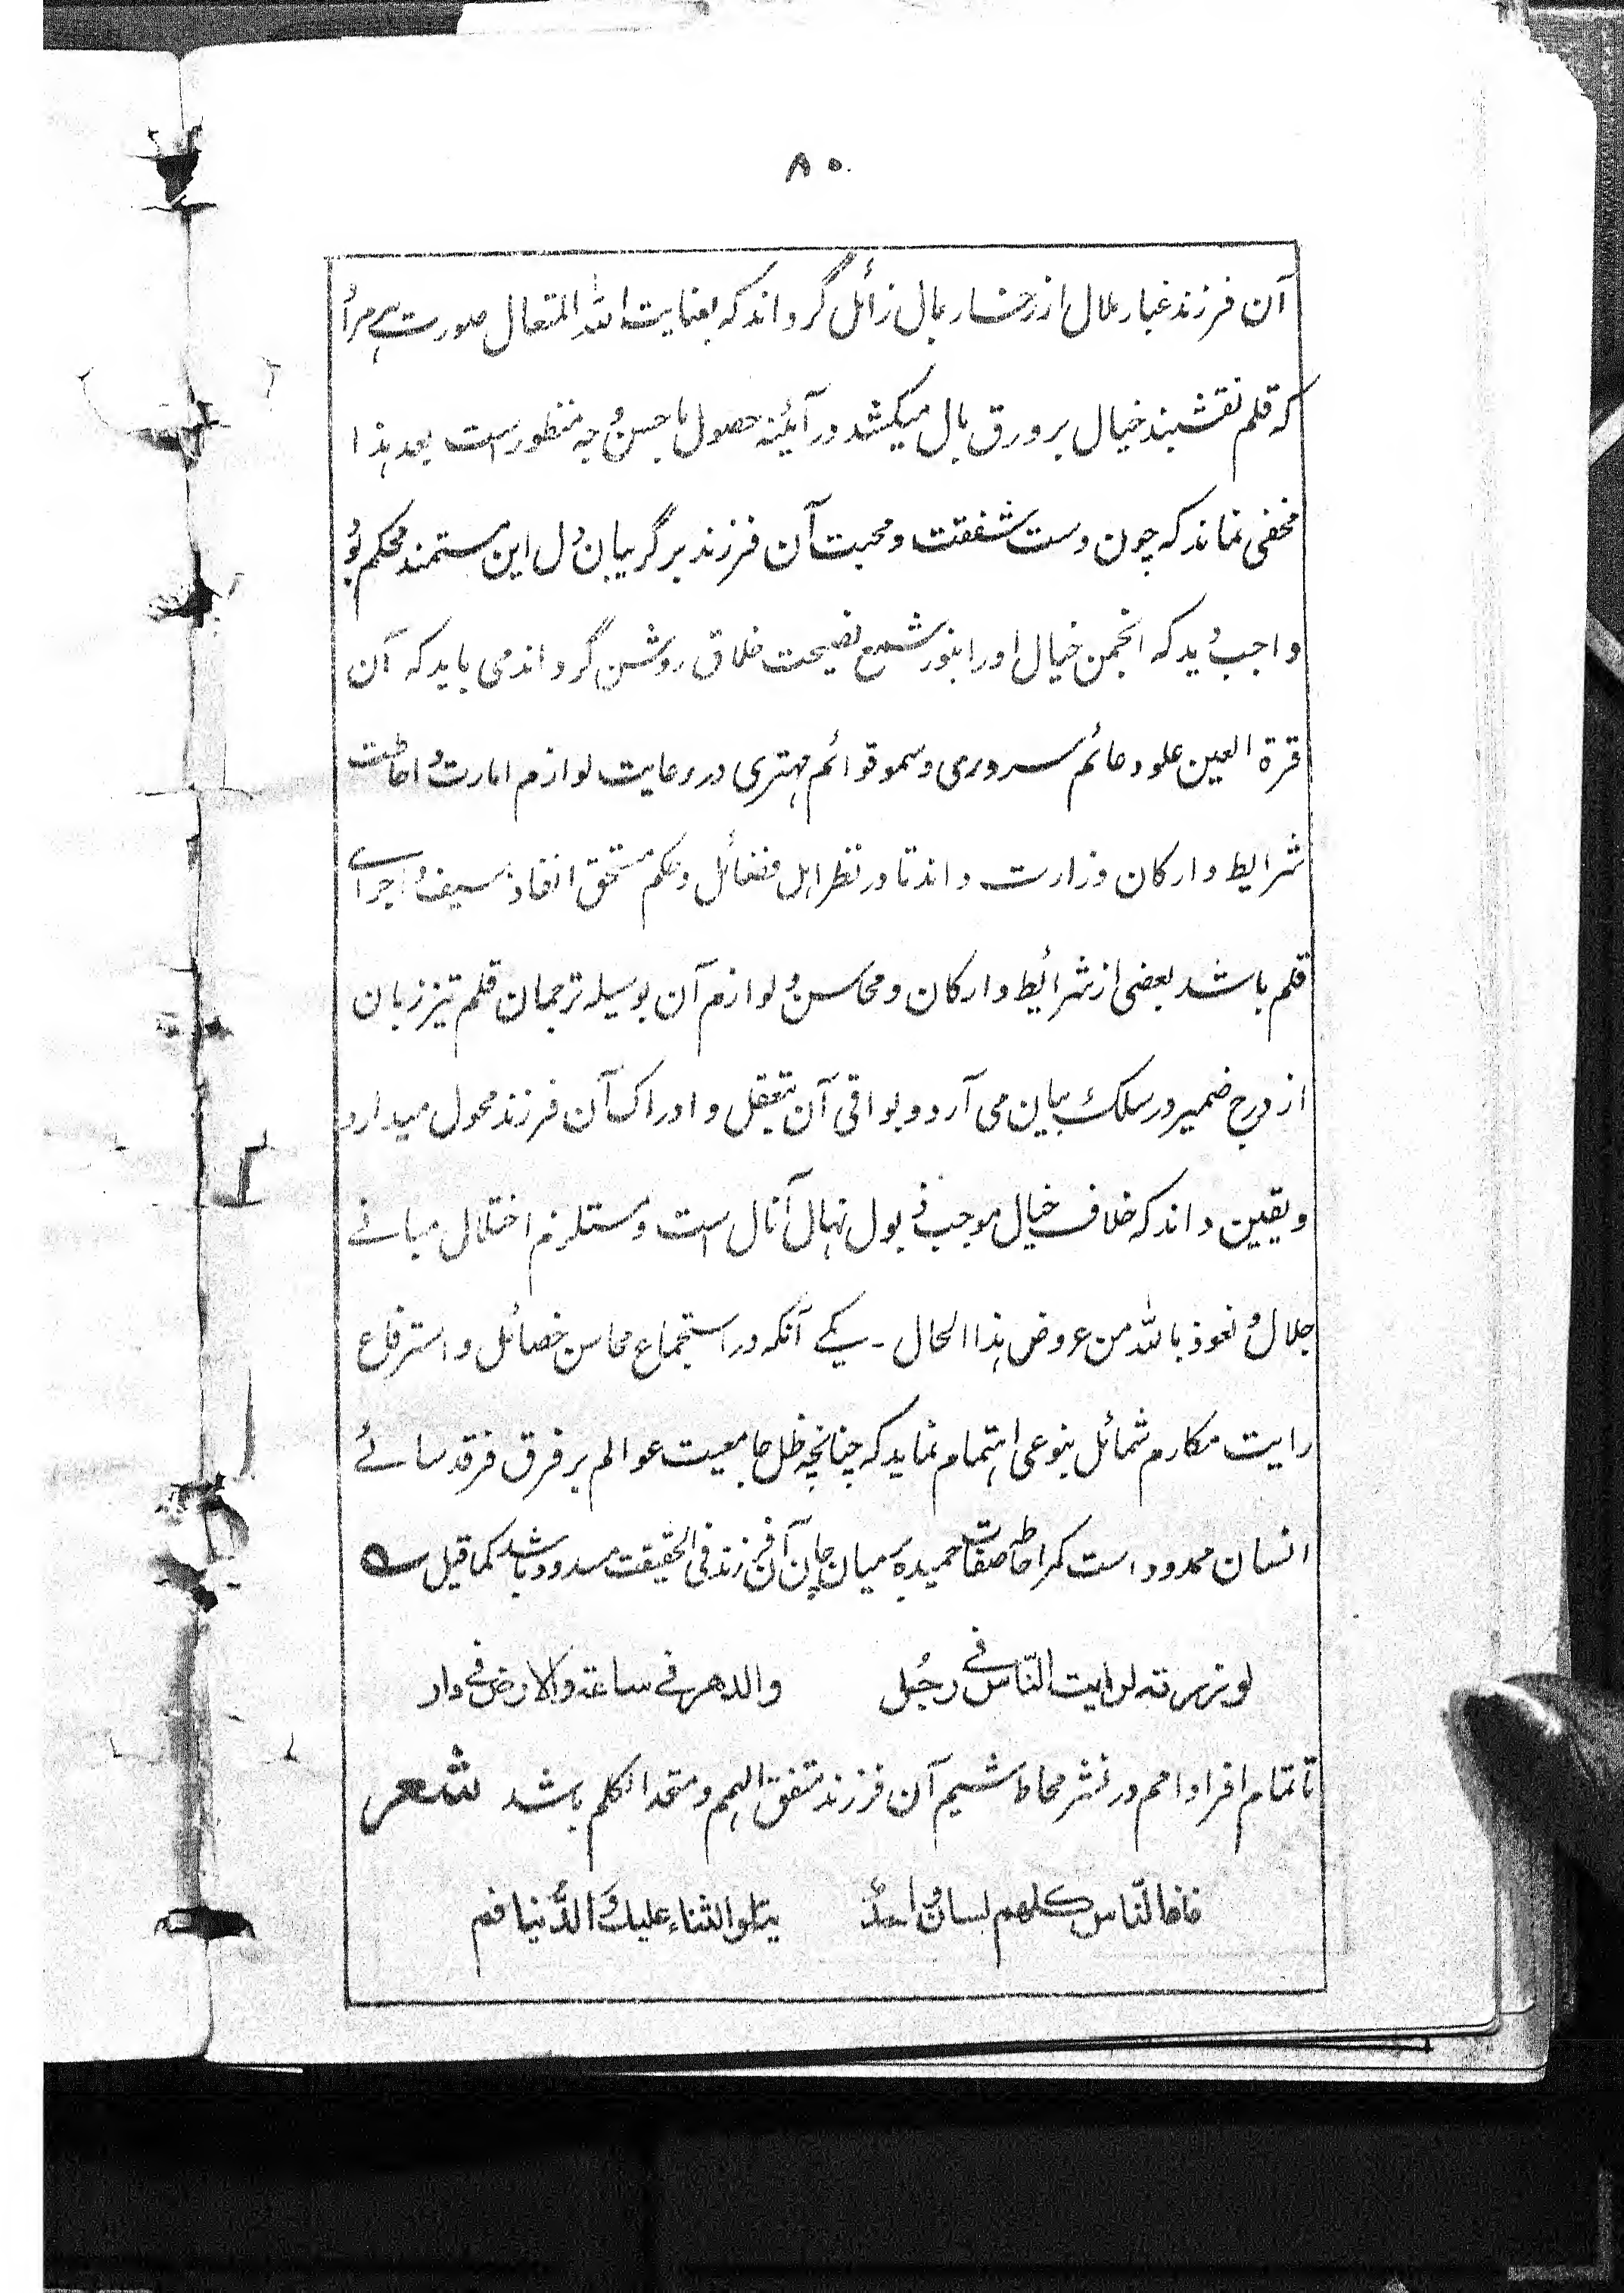 ۸۵
آن فرزند غبار ملال از رخسار بال زائل گرداند که بعنایت الله المتعال صورت هر مراد
که قلم نقشبند خیال بر ورق بال میکشد در آئینه حصول باحسن وجه منظور است بعد هذا
مخفی نماند که چون دست شفقت و محبت آن فرزند بر گریبان دل این مستمند محکم بود
واجب دید که انجمن خیال او را بنور شمع نصیحت خلاق روشن گرداند می باید که آن
قرة العین علو دعائم سروری و سمو قوائم مهتری در رعایت لوازم امارت و احاطت
شرایط و ارکان وزارت داند تا در نظر اهل فضائل و حکم مستحق انفاذ سیف و اجراے
قلم باشد بعضی از شرائط و ارکان و محاسن و لوازم آن بوسیله ترجمان قلم تیز زبان
از درج ضمیر در سلک بیان می آرد و بواقی آن بتعقل و ادراک آن فرزند محول میدارد
و یقین داند که خلاف خیال موجب ذبول نهال آنال است و مستلزم اختلال مبانے
جلال و نعوذ بالله من عروض هذا الحال ۔ یکے آنکه در استجماع محاسن خصائل و استرفاع
رایت مکارم شمائل بنوعی اهتمام نماید که چنانچه ظل جامعیت عوالم بر فرق فرقد سائے
انسان ممدود است کمر احاطه صفات حمیده بر میان جان آن فرزند فی الحقیقت مسدود باشد کما قیل
لو زرته لرایت النّاس فی رجُل والدهر فی ساعة والارض فی دار
تا تمام افراد امم در نشر محامد شیم آن فرزند متفق الهمم و متحد الکلم باشد شعر
فالنّاس کلهم لسان واحدٌ یتلو الثناء علیك والدُّنیا فم